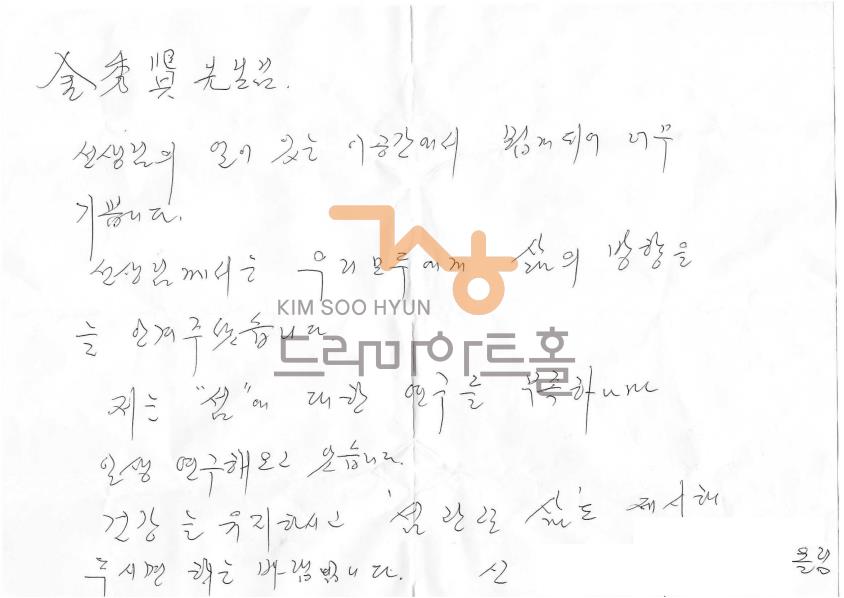 金秀賢 선생님.
선생님의 얼이 있는 이공간에서 뵙게되어 너무
기쁩니다.
선생님께서는 우리모두에게 삶의 방향을
늘 안겨주셨습니다
KIM SOO HYUN
드라마아트홀
저는 "섬"에 대한 연구를 부족하나마
일생 연구해오고 있습니다.
건강을 유지하시고 '섬 관련 삶'도 제시해
주시면 하는 바램입니다. 신
올림